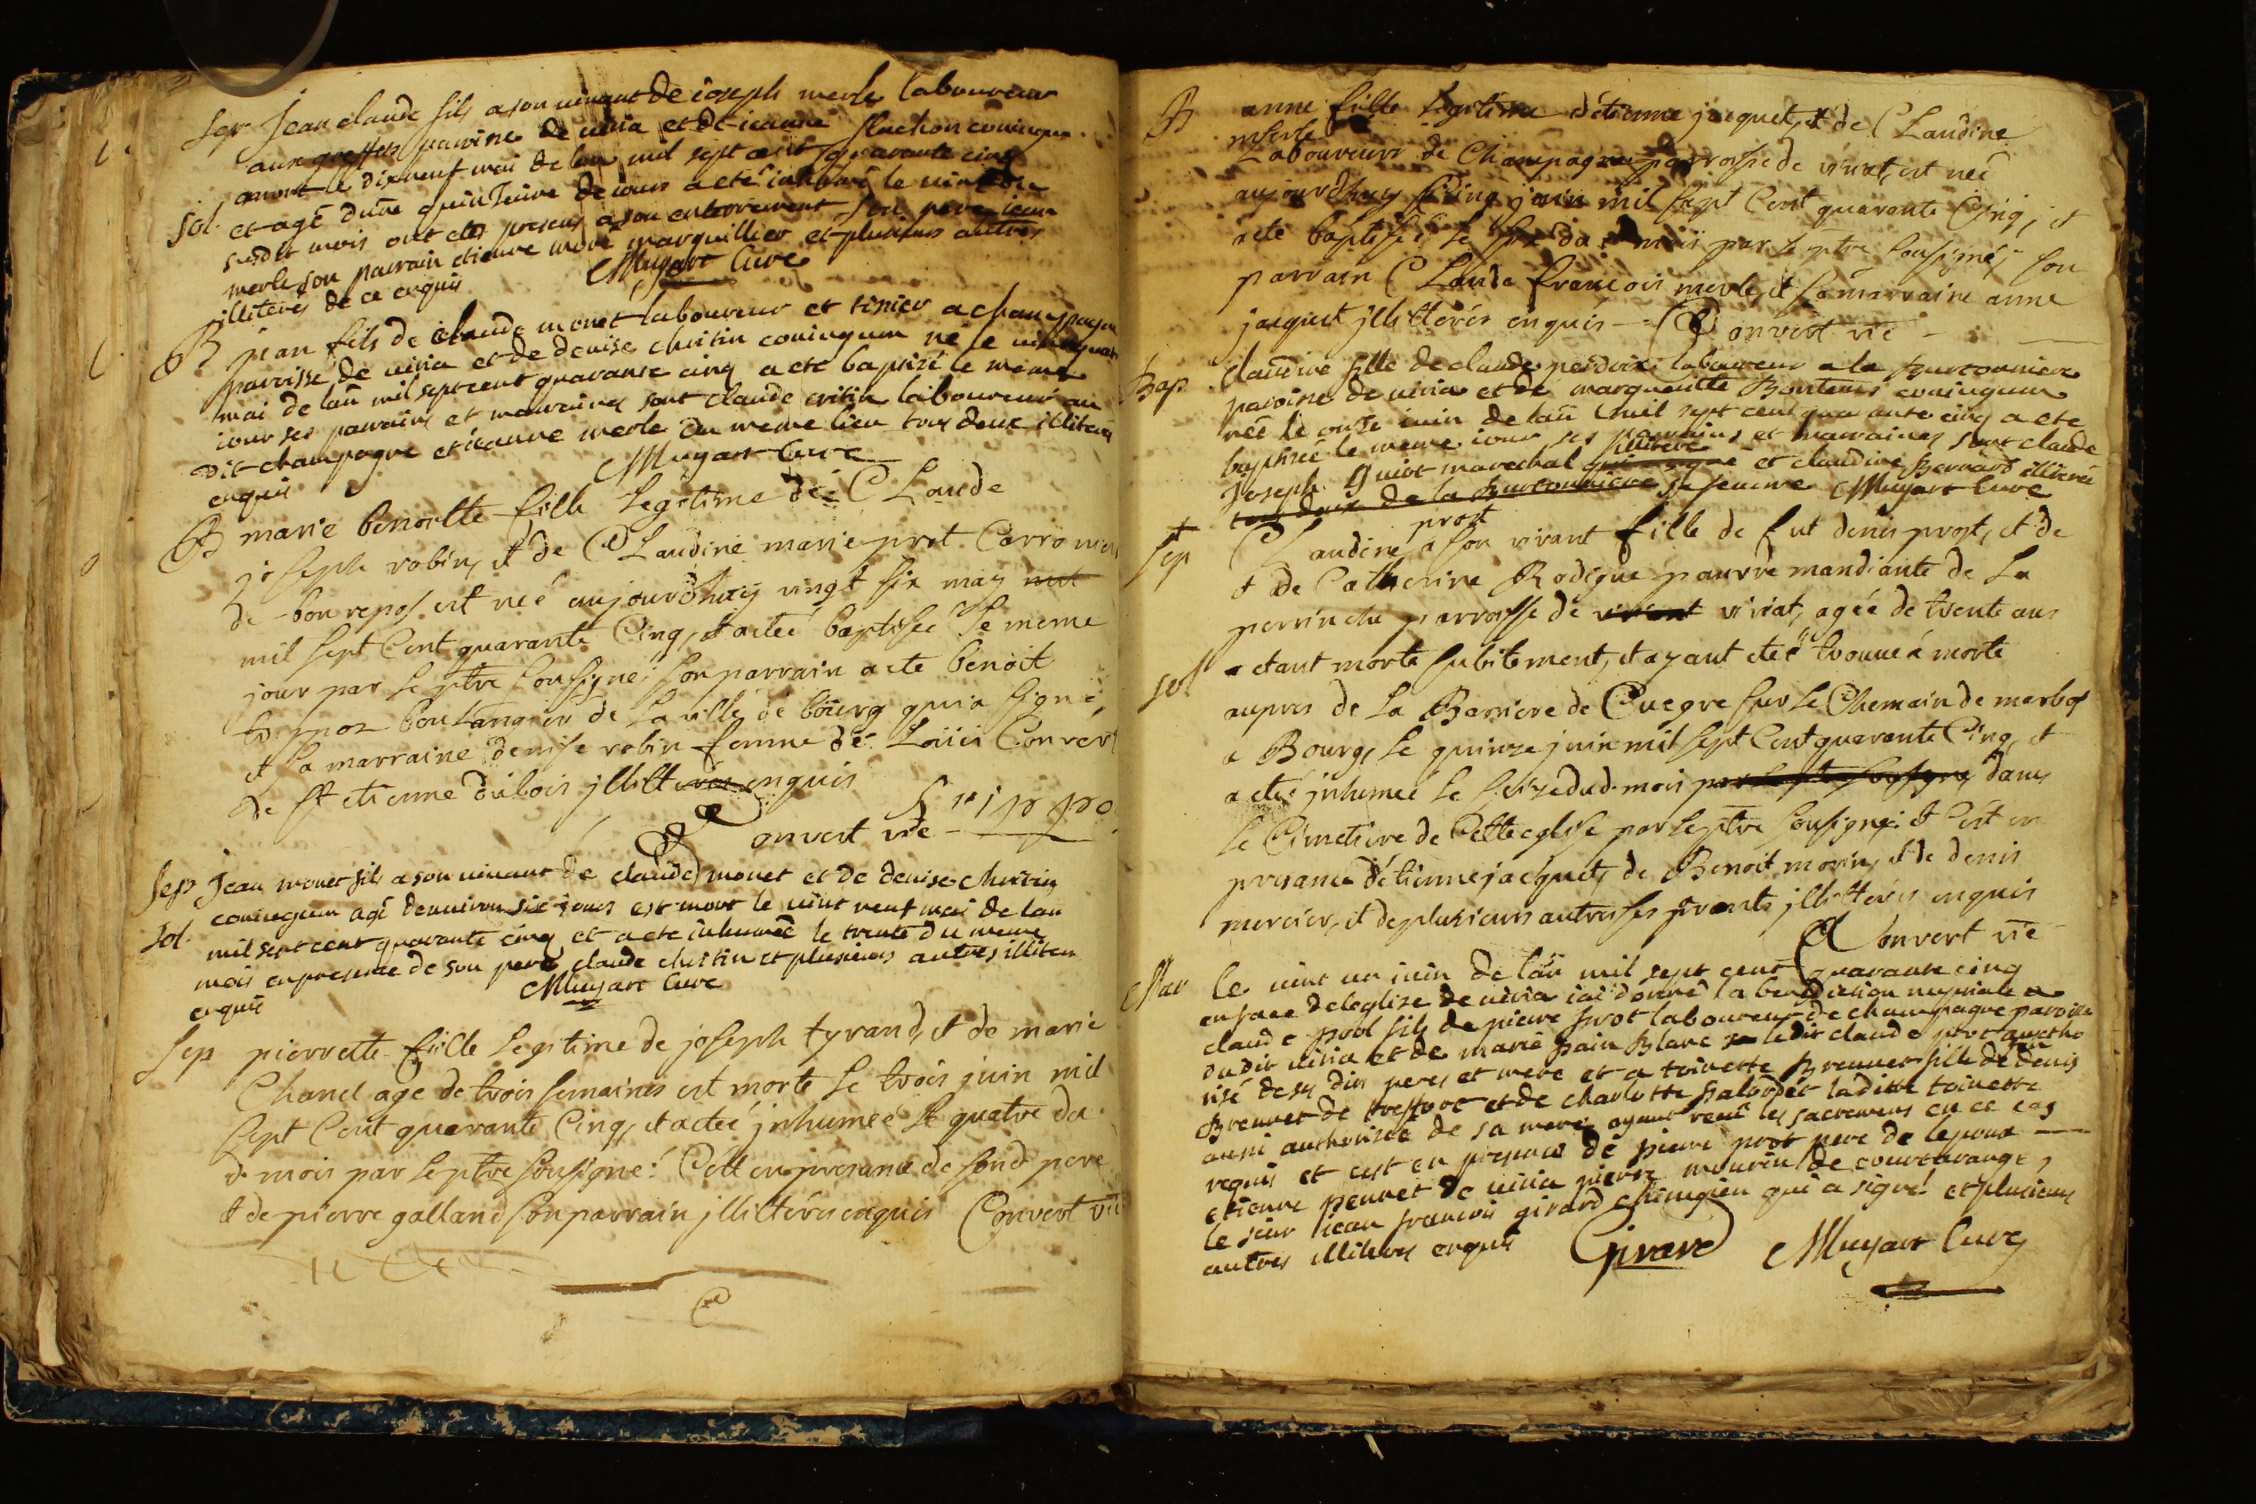 Sep Jean claude fils a son vivant de ioseph merle laboureur
aux greffets paroisse de viria et de ieanne flachon coniugum
sol. et agé d'une quinzeine de iours a eté inhumé le vint du
susdit mois ont etés presens a son enterrement son pere iean
merle son parrain etienne moré marguillier et plusieurs autres
illiterés de ce enquis Muyart Curé
B jean fils de claude monet laboureur et a champagne
paroisse de viria et de denise chritin coniugum né le
mai de lan mil sept cent quarante cinq a eté baptisé le même
iour ses parrains et marraines sont claude critin laboureur au
dit champagne et ieanne merle du même lieu tous deux illiterés
enquis Muyart Curé
B marie benoitte fille Legitime de CLaude
joseph robin, et de CLaudine marie prot
de bon repos est neé aujourdhuy vingt six may mil
mil sept Cent quarante Cinq, et aeteé baptiseé le meme
jour par le ptre soussigné: son parrain a ete benoit
boulanger de La ville de bourg qui a signé,
et sa marraine denise robin femme de Loüis Convert
de st etienne dubois jllitterés enquis
Trippo
Convert vre
Sep Jean monet fils a son vivant de claude monet et de denise chritin
coniugum agé denviron six iours est mort le vint neuf mai de lan
sol. mil sept cent quarante cinq et a eté inhumeé le trente du meme
mois en presence de son pere claude chritin et plusieurs autres illiteres
enquis Muyart Curé
Sep pierrette fille Legitime de joseph tyrand, et de marie
Chanel age de trois semaines est morte le trois juin mil
sept Cent quarante Cinq, et aeteé jnhumeé le quatre du
d. mois par le ptre soussigné: C'est en presance de sond pere
et de pierre galland son parrain jllitterés enquis Convert vre
B anne fille legitime d'etienne jacquet, et de CLaudine
merle
Laboureurs de Champagne parroisse de viriat, est neé
aujourdhuy juin mil sept Cent quarante Cinq, et
aete baptiseé le du mois par le ptre soussigné; son
parrain CLaude francois merle, et sa marraine anne
jacquet jllitterés enquis Convert vre
Bap claudine fille de claude perdrix laboureur a la Burtonniere
paroisse de viria et de marguerite coniugum
neé le onze iuin de lan mil sept cent quarante cinq a ete
baptiseé le meme iour ses parrains et marraines sont claude
joseph Guiot marechal illiteré et claudine Bernard illiteré
tous deux de la Burtonniere Muyart Curé
prost
Sep CLaudine a son vivant fille de fut denis prost, et de
et de Catherine Rodigue pauvre mandiante de La
perrinche parroisse de viriat, agée de trente ans
sol etant morte subitement, et ayant eteé trouveé morte
aupres de La Barriere de Cuegre sur Le Chemain de marbos
a Bourg, le quinze juin mil sept Cent quarante Cinq, et
aeteé jnhumeé le seize dud. mois par le ptre soussigné dans
le Cimetiere de Cette eglise par le ptre soussigné: et C'est en
presance d'etienne jacquet, de Benoit morin, et de denis
mercier, et de plusieurs autres ses parents jllitterés enquis
Convert vre
Mar le vint un iuin de lan mil sept cent quarante cinq
en face de leglise de viria iai donné la benediction nuptiale a
claude prot fils de pierre prot laboureur de champagne paroisse
du dit viria et de marie pain Blanc ledit claude prot autho
risé de ses dits peres et mere et a toinette Brevnet fille de feu denis
Brevnet de treffort et de charlotte ladite toinette
aussi authorisée de sa mere ayant receu les sacremens en ce cas
requis et cest en presence de pierre prot pere de lepoux
etienne pevnet de viria pierre mourin de courtarange,
le sieur iean francois girard chirurgien qui a signé et plusieurs
autres illiteres enquis Girard Muyart Curé